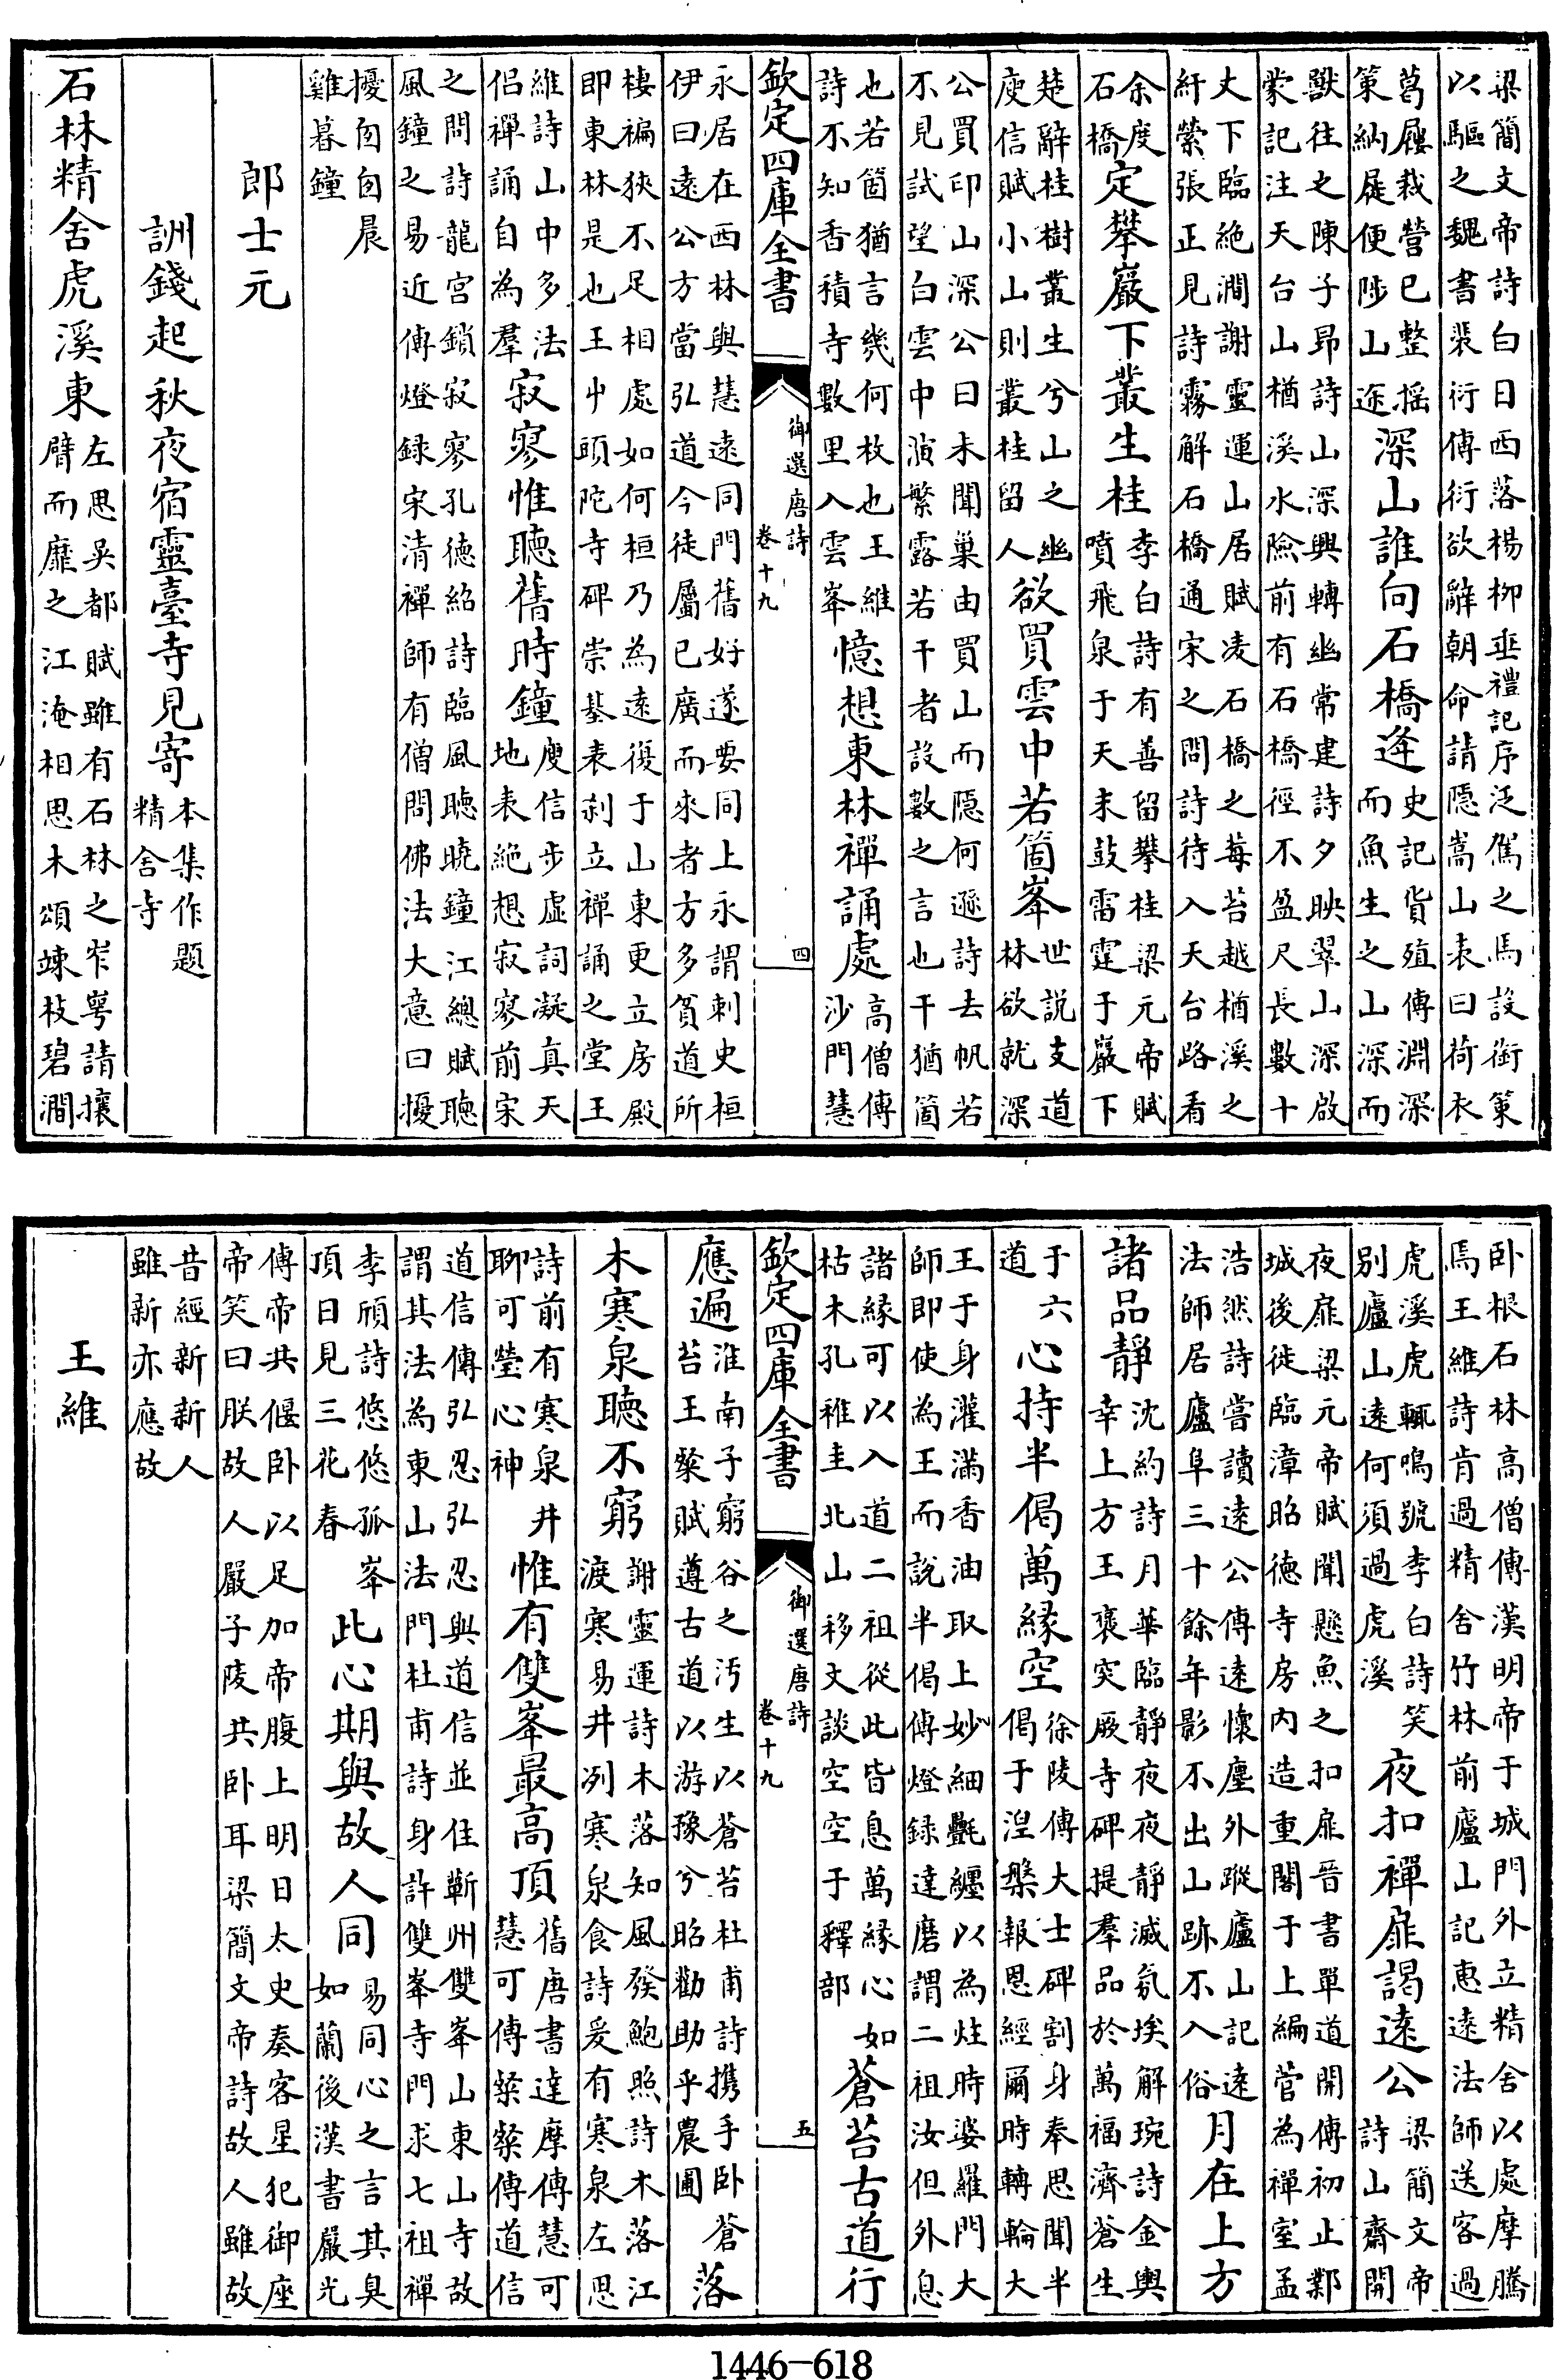 梁簡文帝詩白日西落楊柳垂禮記序泛駕之馬設銜策
以驅之魏書裴衍傳衍欲辭朝命請隱嵩山表曰荷衣
葛屨裁營已整摇
策納屣便陟山途
深山誰向石橋逄
史記貨殖傳淵深
而魚生之山深而
獸往之陳子昂詩山深興轉幽常建詩夕映翠山深啟
蒙記注天台山楢溪水險前有石橋徑不盈尺長數十
丈下臨絶澗謝靈運山居賦凌石橋之莓苔越楢溪之
紆縈張正見詩霧解石橋通宋之問詩待入天台路看
余度
石橋
定攀巖下叢生桂
李白詩有善留攀桂梁元帝賦
噴飛泉于天耒鼓雷霆于巖下
楚辭桂樹叢生兮山之幽
庾信賦小山則叢桂留人
欲買雲中若箇峯
世説支道
林欲就深
公買印山深公曰未聞巢由買山而隱何遜詩去帆若
不見試望白雲中演繁露若干者設數之言也干猶箇
也若箇猶言幾何枚也王維
詩不知香積寺數里入雲峯
憶想東林禪誦處
高僧傳
沙門慧
欽定四庫全書
御選唐詩
卷十九
四
永居在西林與慧遠同門舊好遂要同上永謂刺史桓
伊曰遠公方當弘道今徒屬已廣而來者方多貧道所
棲褊狹不足相處如何桓乃為遠復于山東更立房殿
即東林是也王屮頭陀寺碑崇基表刹立禪誦之堂王
維詩山中多法
侣禪誦自為羣
寂寥惟聽舊時鐘
庾信步虚詞凝真天
地表絶想寂寥前宋
之問詩龍宫鎖寂寥孔徳紹詩臨風聴曉鐘江總賦聴
風鐘之易近傳燈録宋清禪師有僧問佛法大意曰擾
擾匆匆晨
雞暮鐘
郎士元
詶錢起秋夜宿靈臺寺見寄
本集作題
精舍寺
石林精舍虎溪東
左思吳都賦雖有石林之岝崿請攘
臂而靡之江淹相思木頌竦枝碧澗
卧根石林高僧傳漢明帝于城門外立精舍以處摩騰
焉王維詩肯過精舍竹林前廬山記惠遠法師送客過
虎溪虎輒鳴號李白詩笑
别廬山遠何須過虎溪
夜扣禪扉謁遠公
梁簡文帝
詩山齋開
夜扉梁元帝賦聞懸魚之扣扉晉書單道開傳初止鄴
城後徙臨漳昭徳寺房内造重閣于上編菅為禪室孟
浩然詩嘗讀遠公傳遠懷塵外蹤廬山記遠
法師居廬阜三十餘年影不出山跡不入俗
月在上方
諸品靜
沈約詩月華臨靜夜夜靜滅氛埃解琬詩金輿
幸上方王襃突厥寺碑提羣品於萬福濟蒼生
于六
道
心持半偈萬縁空
徐陵傅大士碑割身奉思聞半
偈于湼槃報恩經爾時轉輪大
王于身灌滿香油取上妙細㲲纏以為炷時婆羅門大
師即使為王而説半偈傳燈録達磨謂二祖汝但外息
諸縁可以入道二祖從此皆息萬縁心如
枯木孔稚圭北山移文談空空于釋部
蒼苔古道行
欽定四庫全書
御選唐詩
卷十九
五
應遍
淮南子窮谷之汚生以蒼苔杜甫詩携手卧蒼
苔王粲賦遵古道以游豫兮昭勸助乎農圃
落
木寒泉聴不窮
謝靈運詩木落知風發鮑照詩木落江
渡寒易井冽寒泉食詩爰有寒泉左思
詩前有寒泉井
聊可瑩心神
惟有雙峯最高頂
舊唐書達摩傳慧可
慧可傳粲粲傳道信
道信傳弘忍弘忍與道信並住蘄州雙峯山東山寺故
謂其法為東山法門杜甫詩身許雙峯寺門求七祖禪
李頎詩悠悠孤峯
頂日見三花春
此心期與故人同
易同心之言其臭
如蘭後漢書嚴光
傳帝共偃卧以足加帝腹上明日太史奏客星犯御座
帝笑曰朕故人嚴子陵共卧耳梁簡文帝詩故人雖故
昔經新新人
雖新亦應故
王維
1446—618